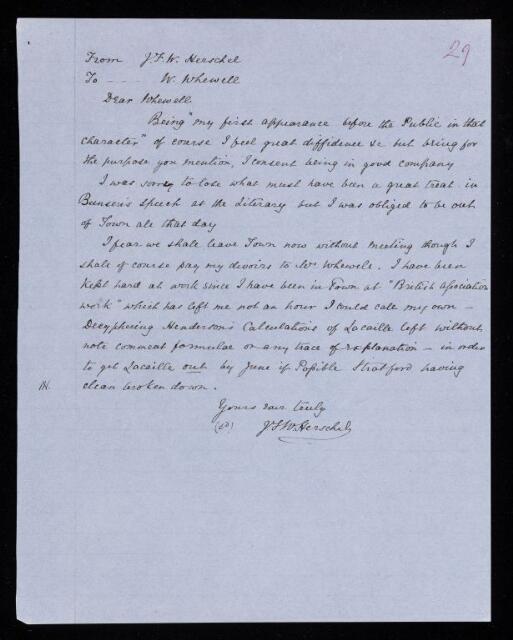 29
From J.F.W. Herschel
To --- W. Whewell
Dear Whewell
Being "my first appearance before the Public in that
character" of course I feel great diffidence &c but being for
the purpose you mention, I consent being in good company
I was sorry to lose what must have been a great treat in
Bunsen's speech at the Literary but I was obliged to be out
of Town all that day
I fear we shall leave Town now without meeting though I
shall of course pay my devoirs to Mrs Whewell. I have been
kept hard at work since I have been in Town at "British Association
work" which has left me not an hour I could call my own -
Decyphering Henderson's Calculations of Lacaille left without
note comment formulae or any trace of explanation - in order
to get Lacaille out by June if Possible Stratford having
clean broken down.
Yours ever truly
(sd) J F W Herschel